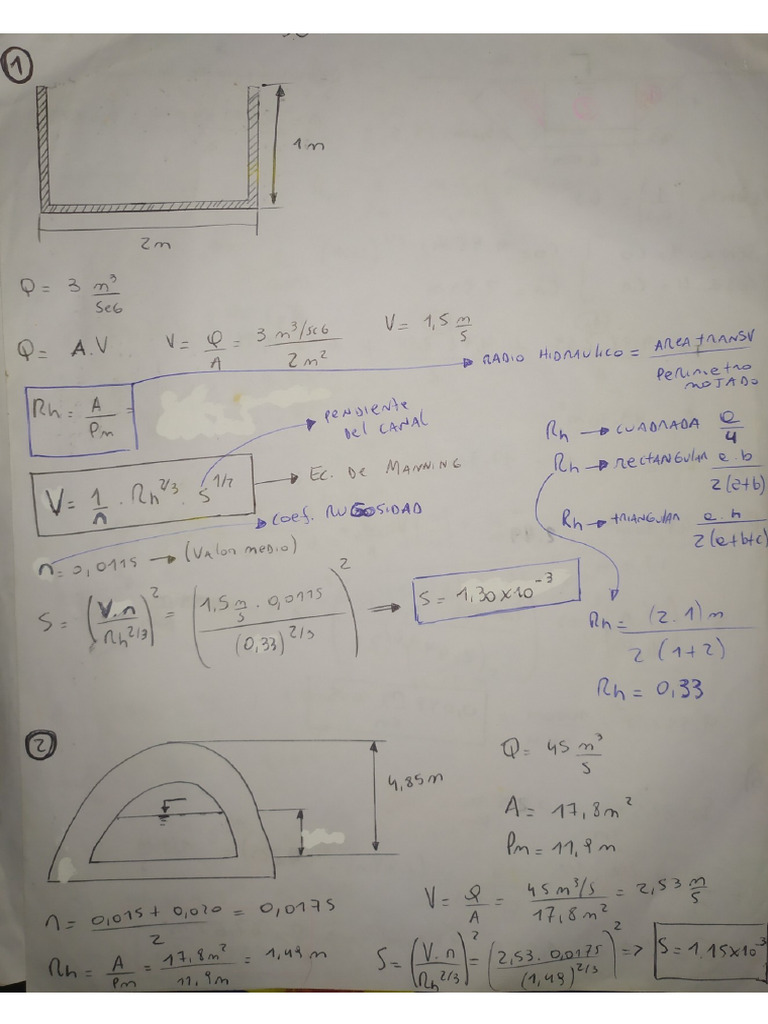 1
1m
2m
Q = 3 m³/SEG
Q = A.V V = Q/A = 3 m³/SEG / 2 m² V = 1,5 m/s
RADIO HIDRAULICO = AREA TRANSV / PERIMETRO MOJADO
Rh = A/Pm =
PENDIENTE DEL CANAL
V = 1/n · Rh^2/3 · S^1/2
Ec. DE MANNING
Rh → CUADRADA a/4
Rh → RECTANGULAR a.b / 2(a+b)
COEF. RUGOSIDAD
Rh → TRIANGULAR a.h / 2(a+b+c)
n = 0,0115 → (VALOR MEDIO)
S = (V.n / Rh^2/3)² = (1,5 m/s · 0,0115 / (0,33)^2/3)² → S = 1,30x10^-3
Rh = (2.1)m / 2(1+2)
Rh = 0,33
2
4,85m
Q = 45 m³/s
A = 17,8m²
Pm = 11,9m
V = Q/A = 45m³/s / 17,8m² = 2,53 m/s
n = 0,015 + 0,020 / 2 = 0,0175
Rh = A/Pm = 17,8m² / 11,9m = 1,49m
S = (V.n / Rh^2/3)² = (2,53 · 0,0175 / (1,49)^2/3)² => S = 1,15x10^-3